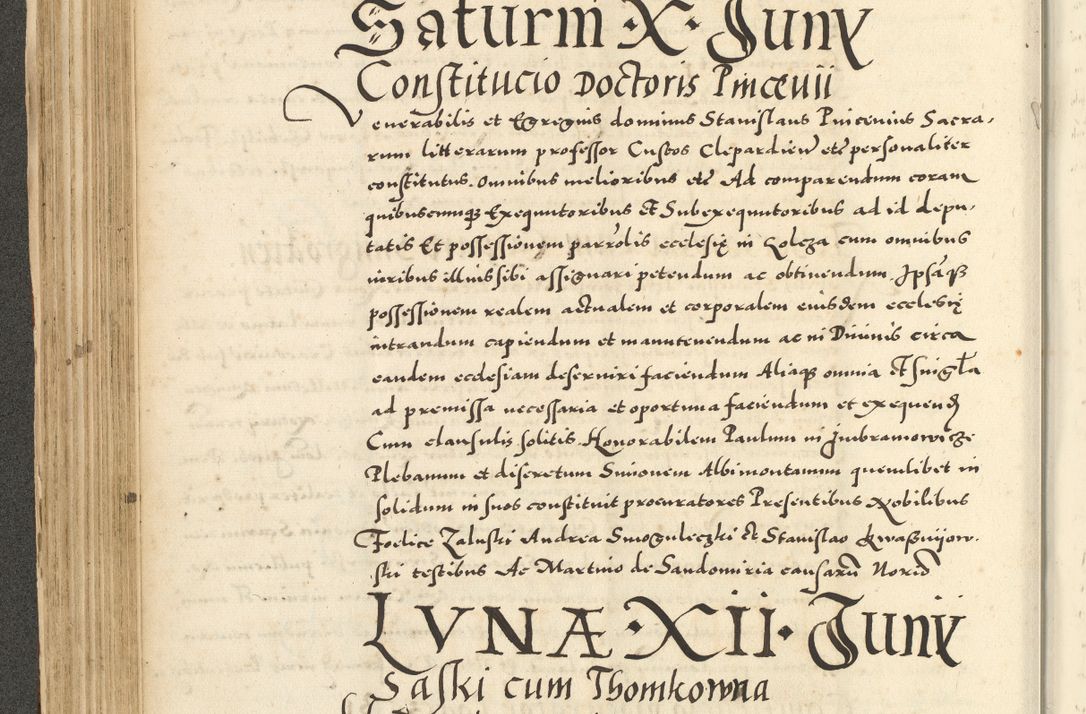 Saturni · X · Juny
Constitucio Doctoris Pincevii
Venerabilis et Egregius dominus Stanislaus Pincevius Sacra-
rum litterarum professor Custos Clepardien etc personaliter
constitutus. Omnibus melioribus etc Ad comparendum coram
quibuscumque Exequutoribus Et Subexequutoribus ad id depu-
tatis Et possessionem parrolis ecclesię in Kolcza cum omnibus
iuribus illius sibi assignari petendum ac obtinendum. Ipsāque
possessionem realem actualem et corporalem eiusdem ecclesię
intrandum capiendum et manutenendum ac in Divinis circa
eandem ecclesiam deserviri faciendum Aliaque omnia Et singła
ad premissa necessaria et oportuna faciendum et exequend
Cum clausulis solitis. Honorabilem Paulum in Jmbramowicze
Plebanum et discretum Simonem Albimontanum quemlibet in
solidum in suos constituit procuratores Presentibus Nobilibus
Foelice Zaluski Andrea Smoguleczki Et Stanislao Kwasniiow-
ski testibus Ac Martino de Sandomiria causarū Norio
LVNÆ · XII · Juny
Saski cum Thomkowna